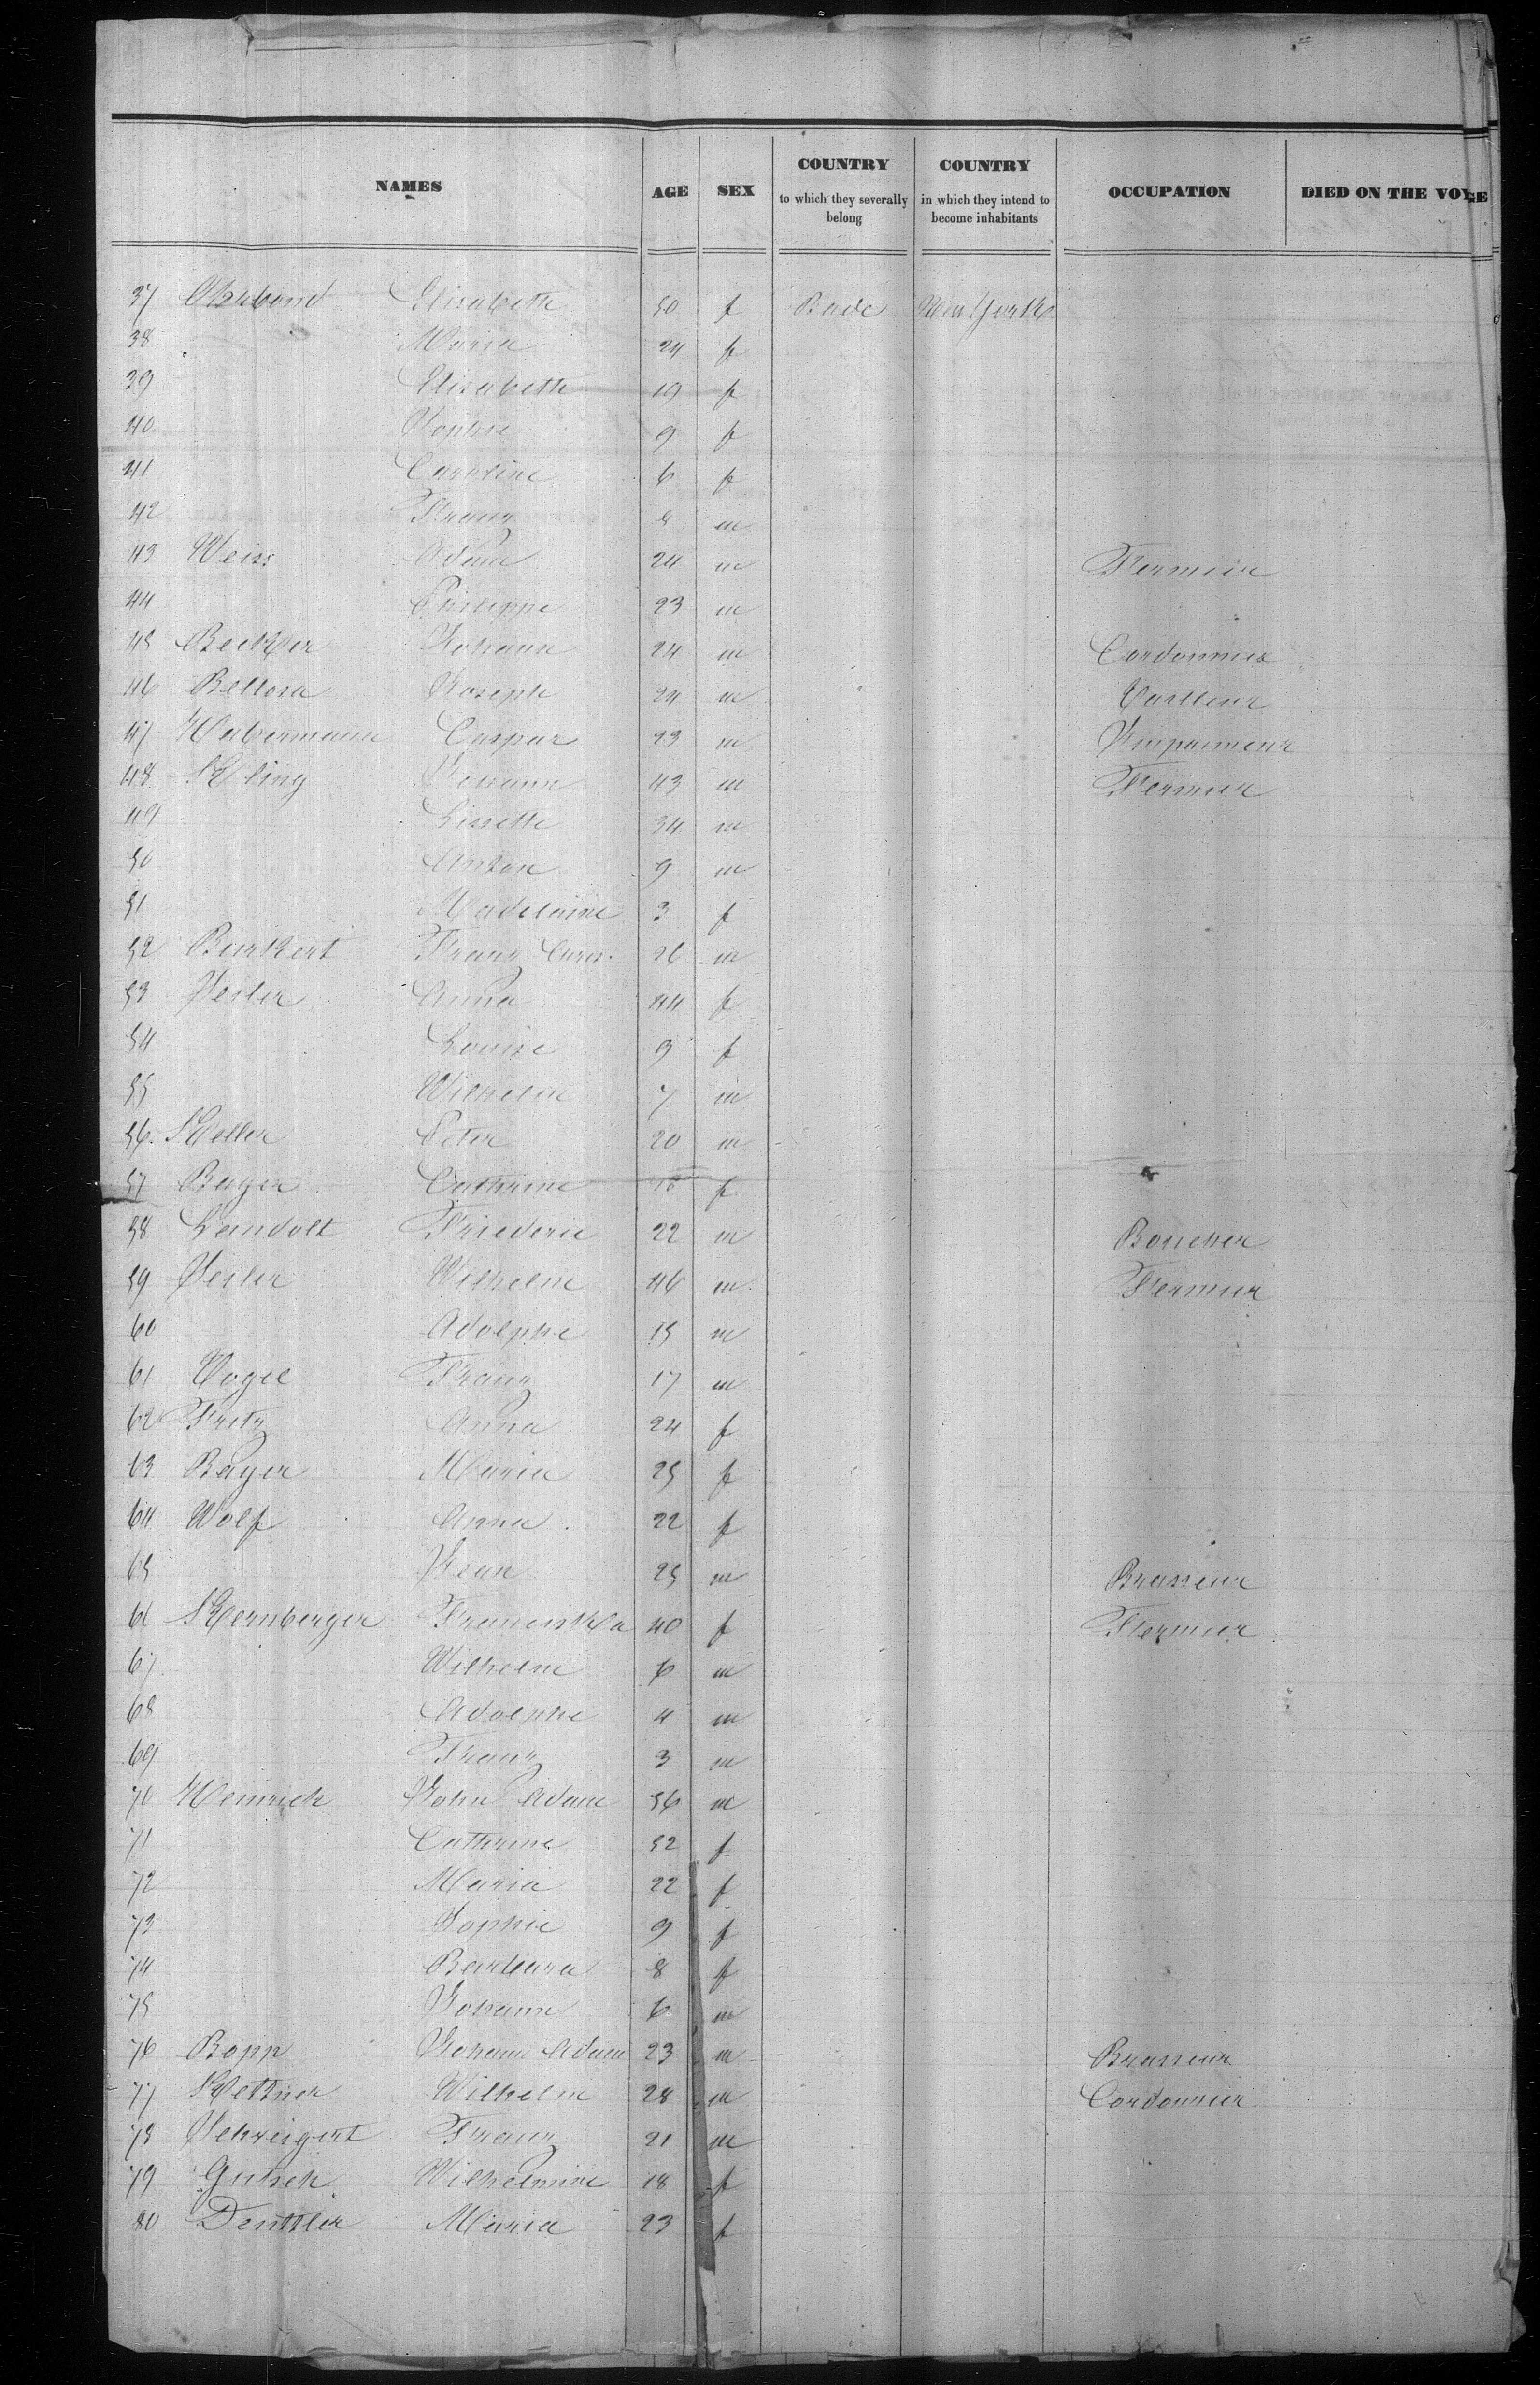 NAMES AGE SEX COUNTRY to which they severally belong COUNTRY in which they intend to become inhabitants OCCUPATION DIED ON THE VOY GE
37 Elisabeth 50 f Bade New York
38 Maria 24 f
39 Elisabeth 19 f
40 Sophie 9 f
41 Caroline 6 f
42 Franz m
43 Weiss Adam 24 m Fermier
44 Philippe 23 m
45 Becker Johann 24 m Cordonnier
46 Bellosa Joseph 24 m Tailleur
47 Habermann Caspar 23 m
48 Kling Johann 43 m Fermier
49 Lisette 34 m
50 Anton 9 m
51 Madelaine 3 f
52 Burkert Franz 26 m
53 Anna 44 f
54 Louise 9 f
55 Wilhelm 7 m
56. Keller Peter 20 m
57 Bayer Cathrine f
58 Landolt Friederic 22 m Boucher
59 Wilhelm 46 m Fermier
60 Adolphe 15 m
61 Vogel Franz 17 m
62 Fritz Anna 24 f
63 Bayer Maria 25 f
64 Wolf Anna 22 f
65 Jean 25 m Brasseur
66 Kernberger Franciska 40 f Fermier
67 Wilhelm 6 m
68 Adolphe 4 m
69 Franz 3 m
70 Heinrich John Adam 56 m
71 Cathrine 52 f
72 Maria 22 f
73 Sophie 9 f
74 Barbara 8 f
75 Johann 6 m
76 Bopp Johann Adam 23 m Brasseur
77 Kettner Wilhelm 28 m Cordonnier
78 Schweigert Franz 21 m
79 Gutsch Wilhelmine 18 f
80 Maria 23 f